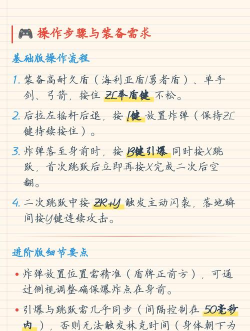 🎮 操作步骤与装备需求
基础版操作流程
1. 装备高耐久盾（海利亚盾/勇者盾）、单手
剑、弓箭，按住 ZL举盾键 不松。
2. 后拉左摇杆后退，按 L键 放置炸弹（保持ZL
键持续按住）。
3. 炸弹落至身前时，按 B键引爆 同时按X跳
跃，首次跳跃后立即再按X完成二次后空
翻。
4. 二次跳跃中按 ZR+Y 触发主动闪裂，落地瞬
间按Y键连续攻击。
进阶版细节要点
• 炸弹放置位置需精准（盾牌正前方），可通
过侧视调整确保爆炸点在身前。
• 引爆与跳跃需几乎同步（间隔控制在 50毫秒
内），否则无法触发林克时间（身体朝下为